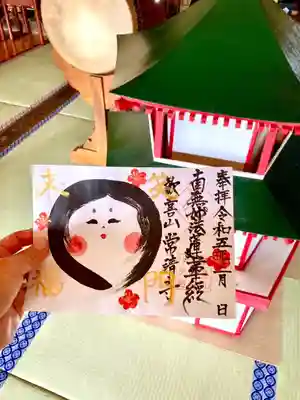 奉拝 令和五年二月 日
南無妙法蓮華経
歓喜山 常請寺
笑門
来福